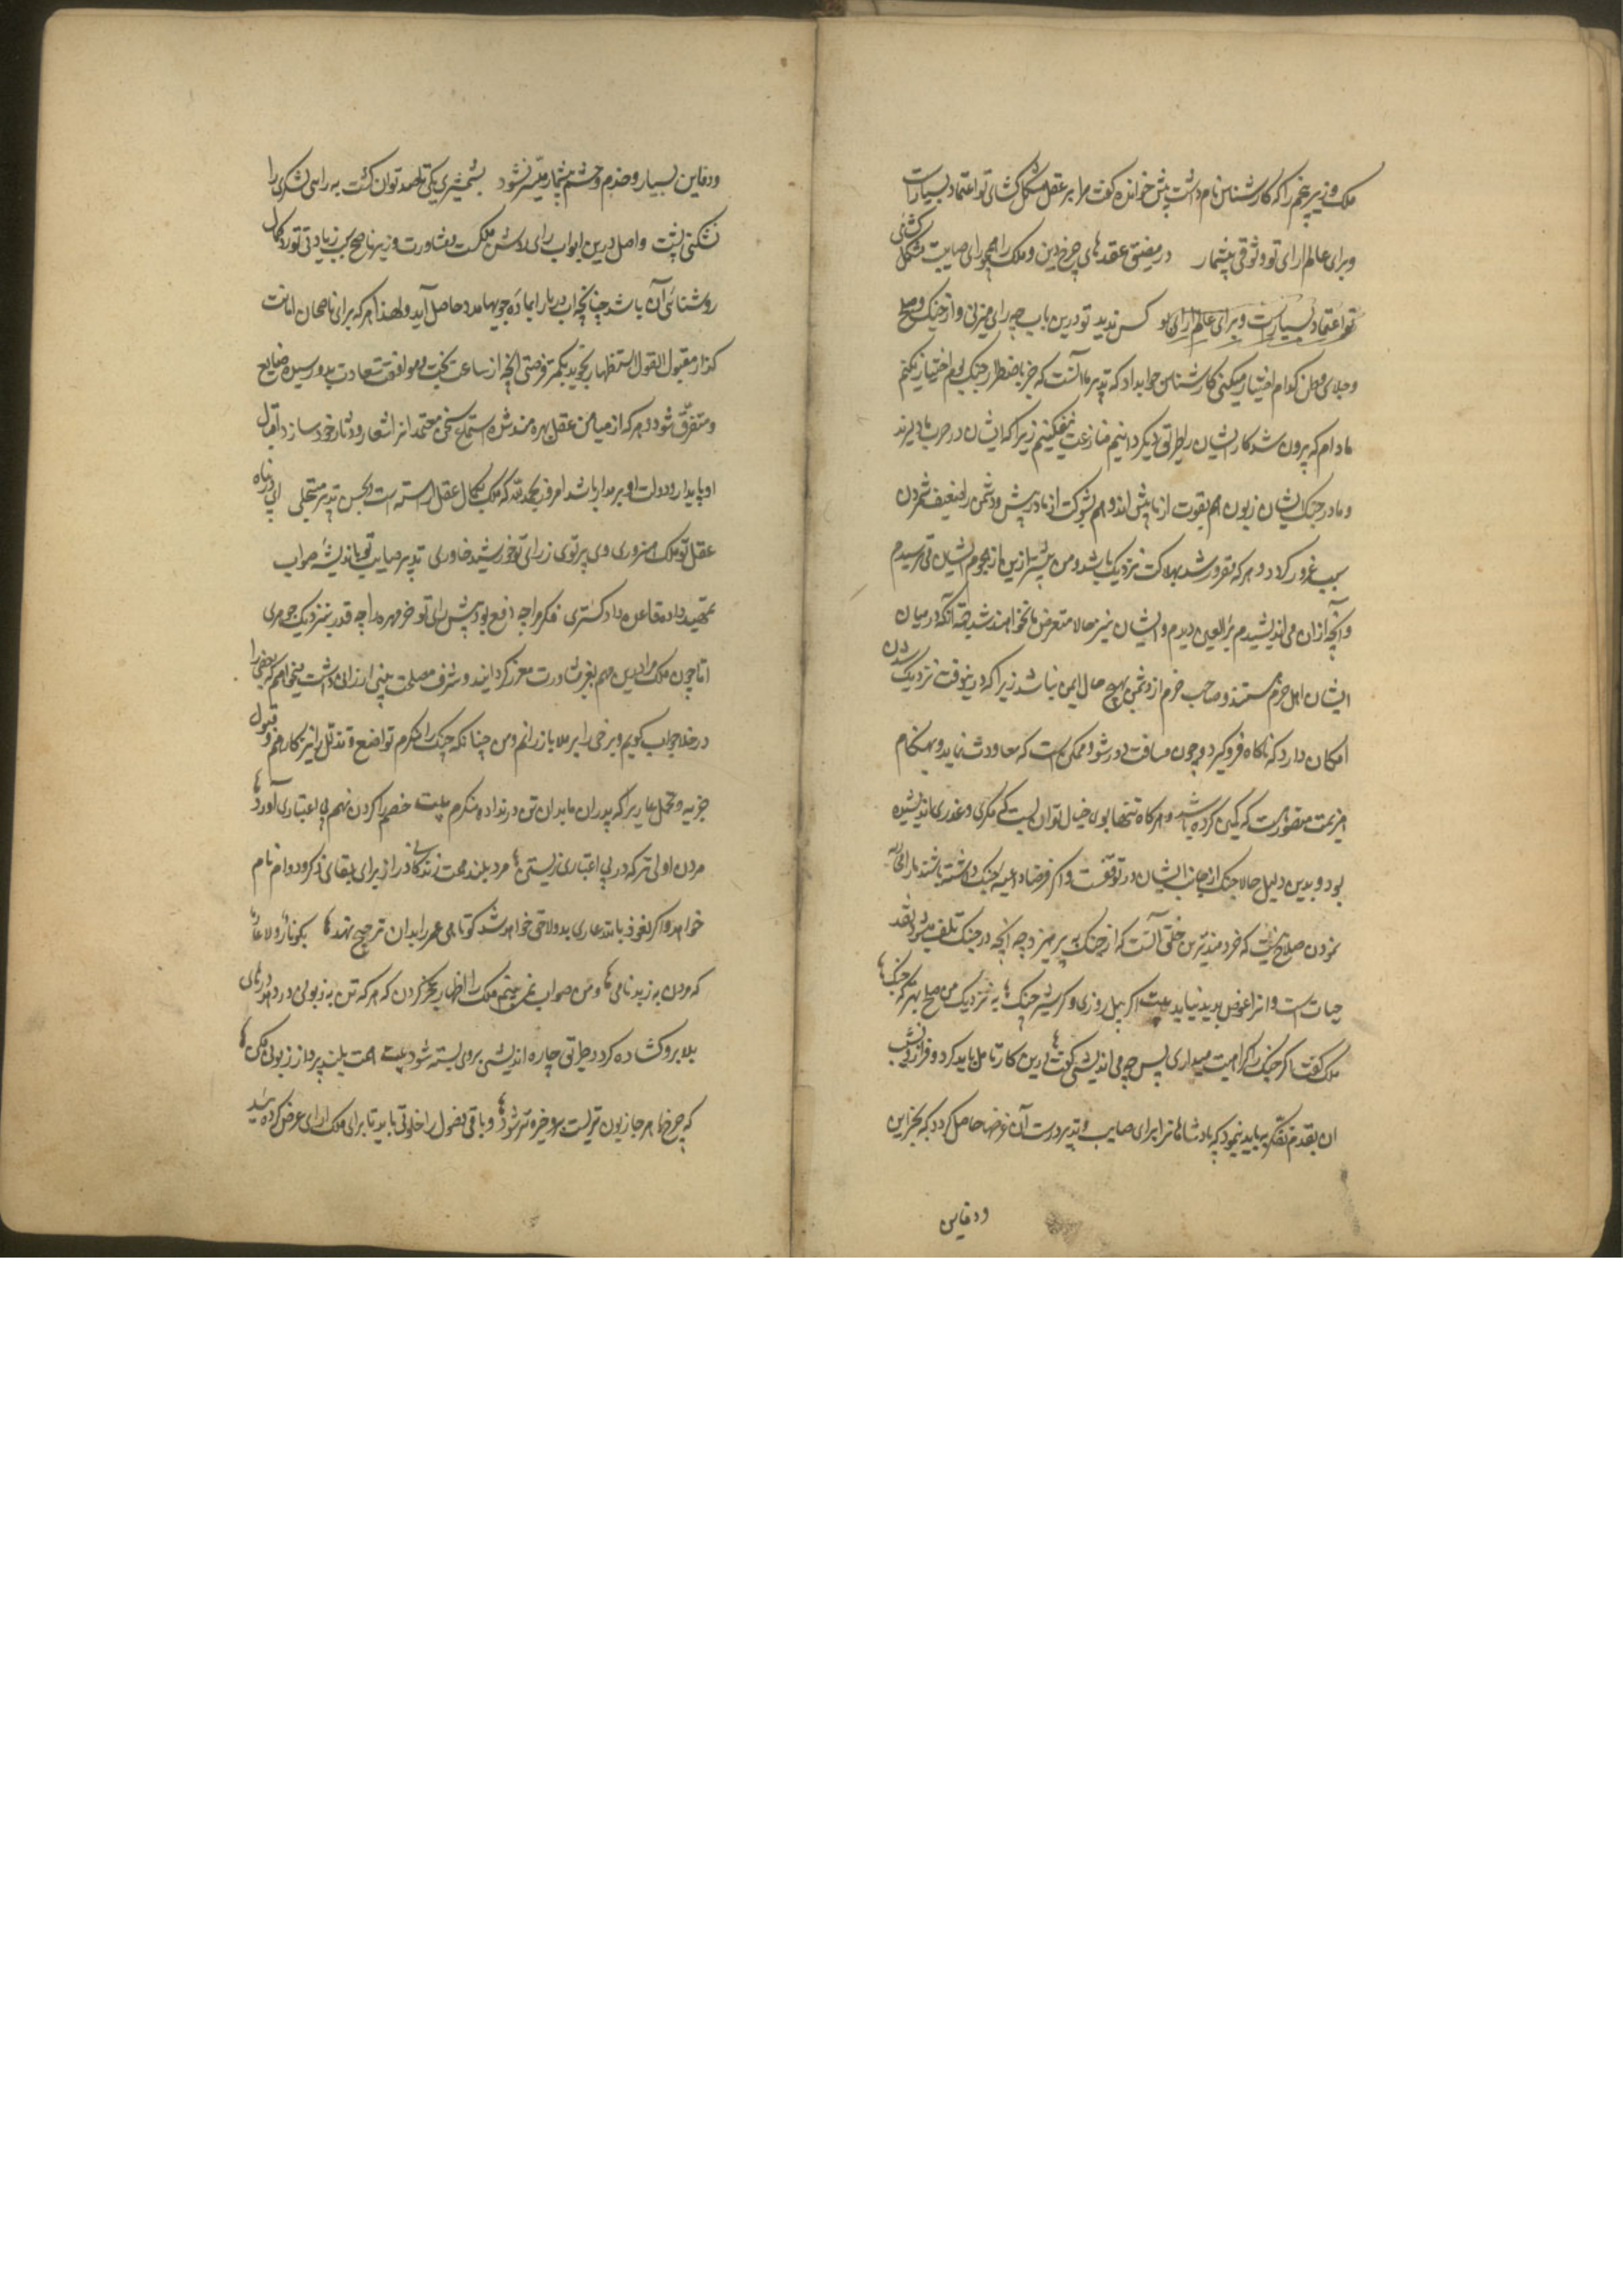 ملک وزیر پنجم را که کارشناس نام داشت پیش خوانده گفت مرا بر عقل مشکل کشای تو اعتماد بسیارست
وبرای عالم ارای تو وثوقی بیشمار در مضیق عقد های چرخ دین و ملک را همچو رای صایبت مشکل کشائی
تو اعتماد بسیارست وبرای عالم ارای تو کس ندید تو درین باب چه رای میزنی و از جنک و صلح
و جلای وطن کدام اختیار میکنی کارشناس جواب داد که تدبیر ما آنست که جز باضطرار جنک بوم اختیار نکنیم
مادام که بیرون شد کار ایشان بطریق دیکر دانیم منازعت نیفکنیم زیرا که ایشان در حرب ما دلیرند
و ما در جنک ایشان زبون هم بقوت از ما بیش اند و هم بشوکت از ما در پیش و دشمن را ضعیف شمردن
سبب غرور کردد و هر که مغرور شد بهلاکت نزدیک باشد و من پیشتر ازین از هجوم ایشان می ترسیدم
و آنچه ازان می اندیشیدم برای العین دیدم و ایشان نیز حالا متعرض ما نخواهند شد چه آنکه در میان
ایشان اهل حزم هستند و صاحب حزم از دشمن بهیچ حال ایمن نباشد زیرا که در وقت نزدیک شدن
امکان دارد که ناکاه فرو کیرد و چون مسافت دور شود ممکن است که معاودت نماید و بهنکام
هزیمت متصورست که کمین کرده باشد و هر کاه تنها بود خیال توان بست که مکری و غدری اندیشیده
بود و بدین دلیل حالا جنک از جانب ایشان در توقفست و اکر فرضا داعیه جنک داشته باشند ما را
نمودن صلاح نیست که خردمندترین خلق آنست که از جنک بپرهیزد چه آنچه در جنک تلف میشود نقد
حیات است و انرا عوض پدید نیاید بیت اکر پیل روزی و کر شیر جنک به نزدیک من صلح بهتر که جنک
ملک کفت اکر جنک را کراهیت میداری پس چه می اندیشی کفت درین کار تامل باید کرد و فراز و نشیب
ان بقدم تفکر بباید پیمود که پادشاهانرا برای صایب و تدبیر درست آن غرضها حاصل کردد که بخزاین
ودفاین
ودفاین بسیار و خدم و حشم بیشمار میسر نشود بشمشیری یکی تا صد توان کشت به رایی لشکری را
بشکنی پشت واصل درین ابواب رای ملکست و مشاورت وزیر ناصح سبب زیادتی نور و کمال
روشنائی آن باشد چنانچه اب دریا را بماده جویها مدد حاصل آید ولهذا هر که برای ناصحان امانت
کذار مقبول القول استظهار نجوید بکمتر فرصتی آنچه از مساعدت بخت و موافقت سعادت بدو رسیده ضایع
و متفرق شود و هر که از میامن عقل بهره مند شد و استماع سخن معتمدانرا شعار و دثار خود سازد اقبال
او پایدار و دولت او بر مدار باشد امروز بحمدالله که ملک بکمال عقل اراسته است و بحسن تدبیر متحلی ای در پناه
عقل تو ملک منوری وی پرتوی ز رای تو خورشید خاوری تدبیر صایب تو باندیشهٔ صواب
تمهید داده قاعدهٔ دادکستری فکر مرا چه وقع بود پیش رای تو خرمهره را چه قدر بنزدیک جوهری
اما چون ملک مرا درین مهم بعز مشاورت معزز کردانید و شرف مصلحت بینی ارزانی داشت میخواهم که بعضی را
در خلا جواب کویم و برخی را بر ملا باز رانم و من چنانکه جنک را منکرم تواضع و تذلل را نیز کارهم و قبول
جزیه و تحمل عار را که پدران ما بدان تن در نداده منکرم بیت خصم را کردن نهم بی اعتباری آورد
مردن اولی تر که در بی اعتباری زیستی مرد بلند همت زندکانی دراز برای بقای ذکر و دوام نام
خواهد و اکر نعوذ بالله عاری بدو لاحق خواهد شد کوتاهی عمر را بدان ترجیح نهد بکونار و لا عار
که مردن به ز بدنامی و من صواب نمی بینم ملک را اظهار عجز کردن که هر که تن به زبونی در دهد درهای
بلا برو کشاده کردد و طریق چاره اندیشی بروی بسته شود بیت همت بلند پرداز زبونی مکن
که چرخ هر جا زبون تریست برو خیره تر شود و باقی فصول را خلوتی باید تا برای ملک ارای عرض کرده شد